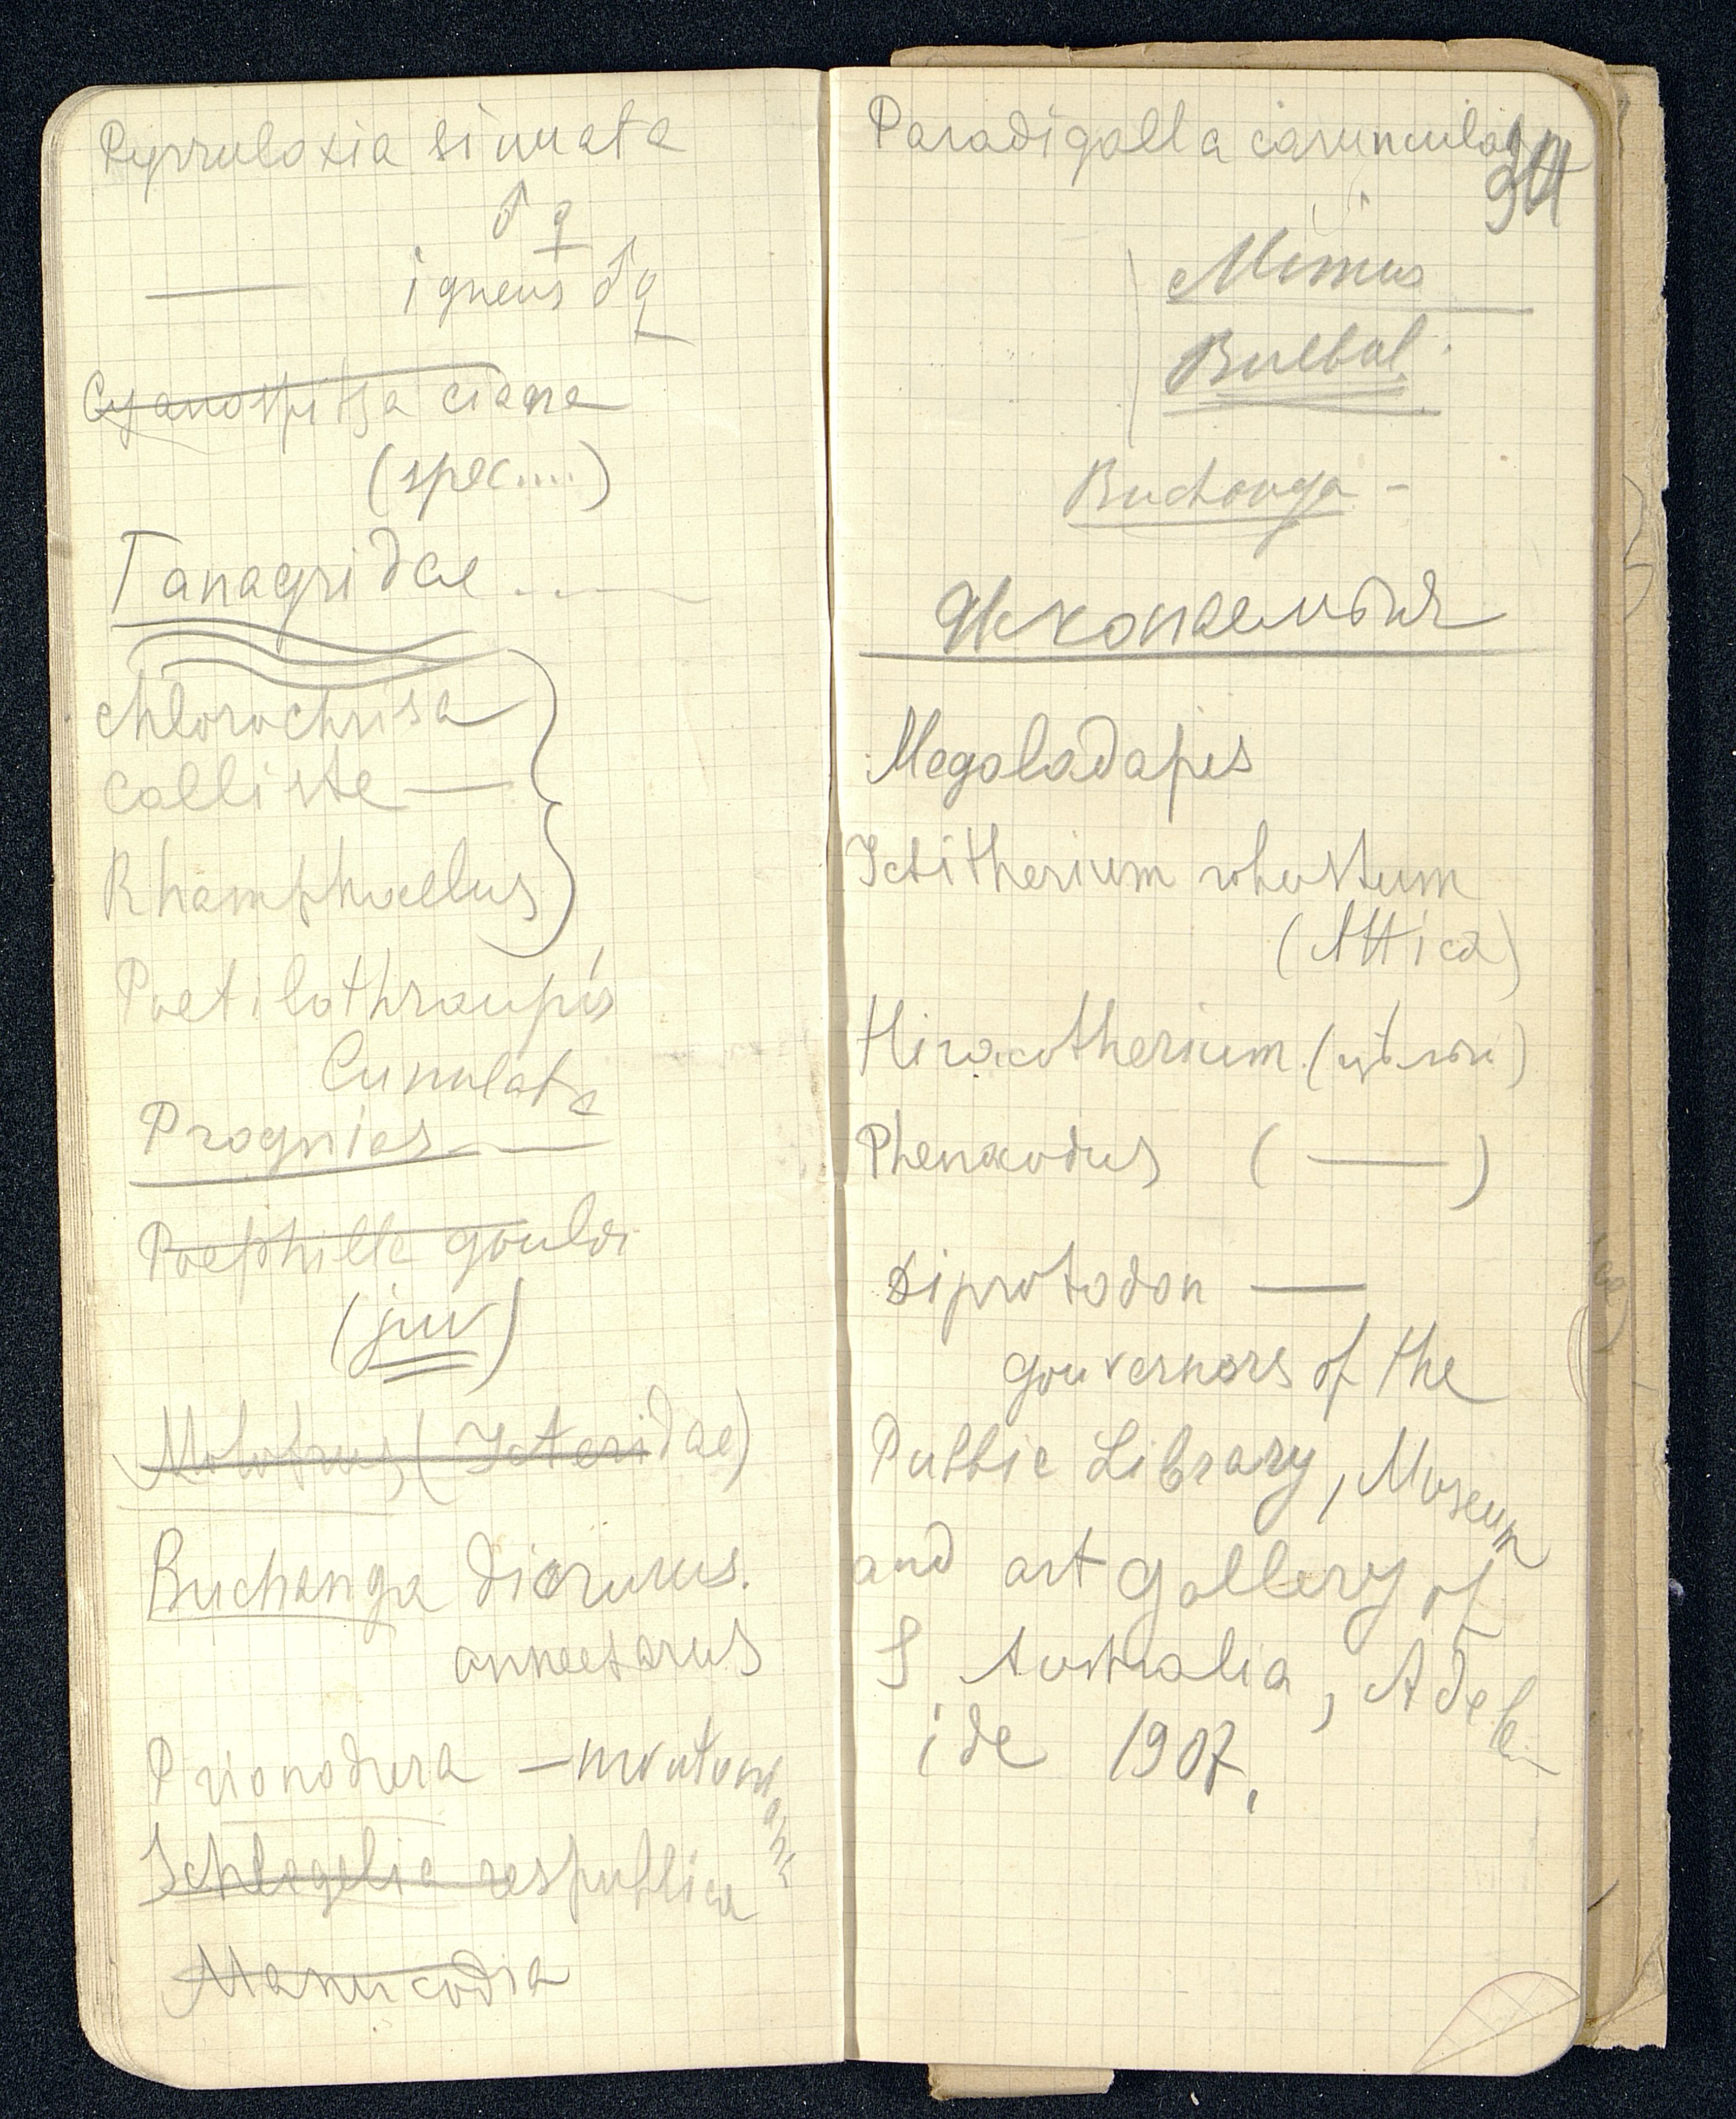 Pyrruloxia sinuata
♂ ♀
— igneus ♂ ♀
Cyanospitza ciane
(spec....)
Tanagridae
Chlorochrisa
Calliste —
Rhamphocelus
Poetilothraupis
Prognies —
Poephilla gouldi
(juv)
Molobrus (Icteridae)
Buchanga dicrurus.
annectarus
Prionodura —
Schlegelia respublica
Manucodia
Paradigalla caruncula
34
Mimus
Bulbul.
Buchanga –
Megaladapis
Ictitherium robustum
(Attica)
Hiracotherium
Phenacodus ( — )
Diprotodon —
gouvernors of the
Public Library, Museum
and art gallery of
S Australia, Adela
ide 1907.